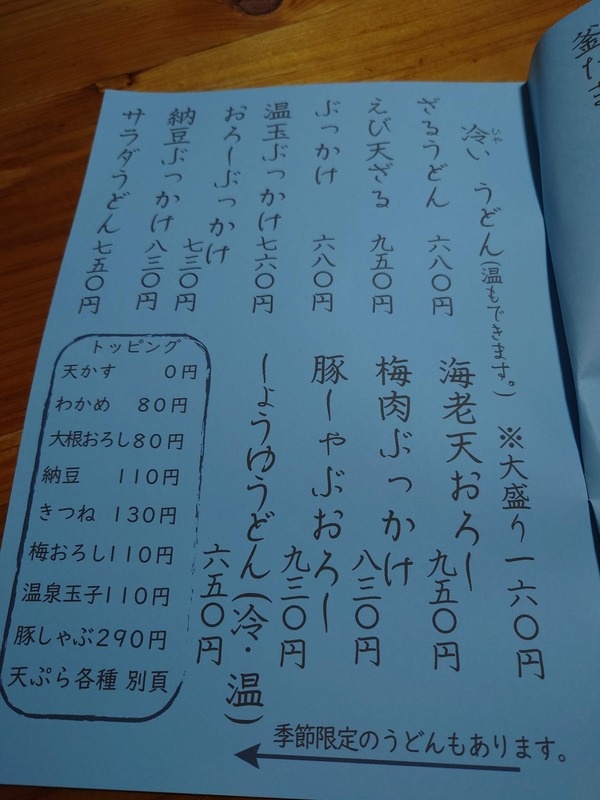 冷い うどん(温もできます。) ※大盛り一六〇円
ひや
ざるうどん 六八〇円
えび天ざる 九五〇円
ぶっかけ 六八〇円
温玉ぶっかけ 七六〇円
おろしぶっかけ 七三〇円
納豆ぶっかけ 八三〇円
サラダうどん 七五〇円
海老天おろし 九五〇円
梅肉ぶっかけ 八三〇円
豚しゃぶおろし 九三〇円
しょうゆうどん(冷・温) 六五〇円
トッピング
天かす 0円
わかめ 80円
大根おろし80円
納豆 110円
きつね 130円
梅おろし110円
温泉玉子110円
豚しゃぶ290円
天ぷら各種 別頁
季節限定のうどんもあります。